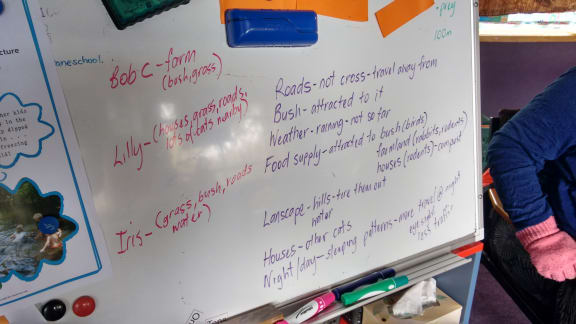 oneschool.
Bob C - farm
(bush, grass)
Lilly - (houses, grass, roads,
lots of cats nearby)
Iris - (grass, bush, roads
water)
-prey
100m
Roads - not cross - travel away from
Bush - attracted to it
Weather - raining - not so far
Food supply - attracted to bush (birds)
farmland (rabbits, rodents)
houses (rodents) - compost
Lanscape - hills - tire them out
water
Houses - other cats
Night/day - sleeping patterns - more travel @ night
eyesight
less traffic